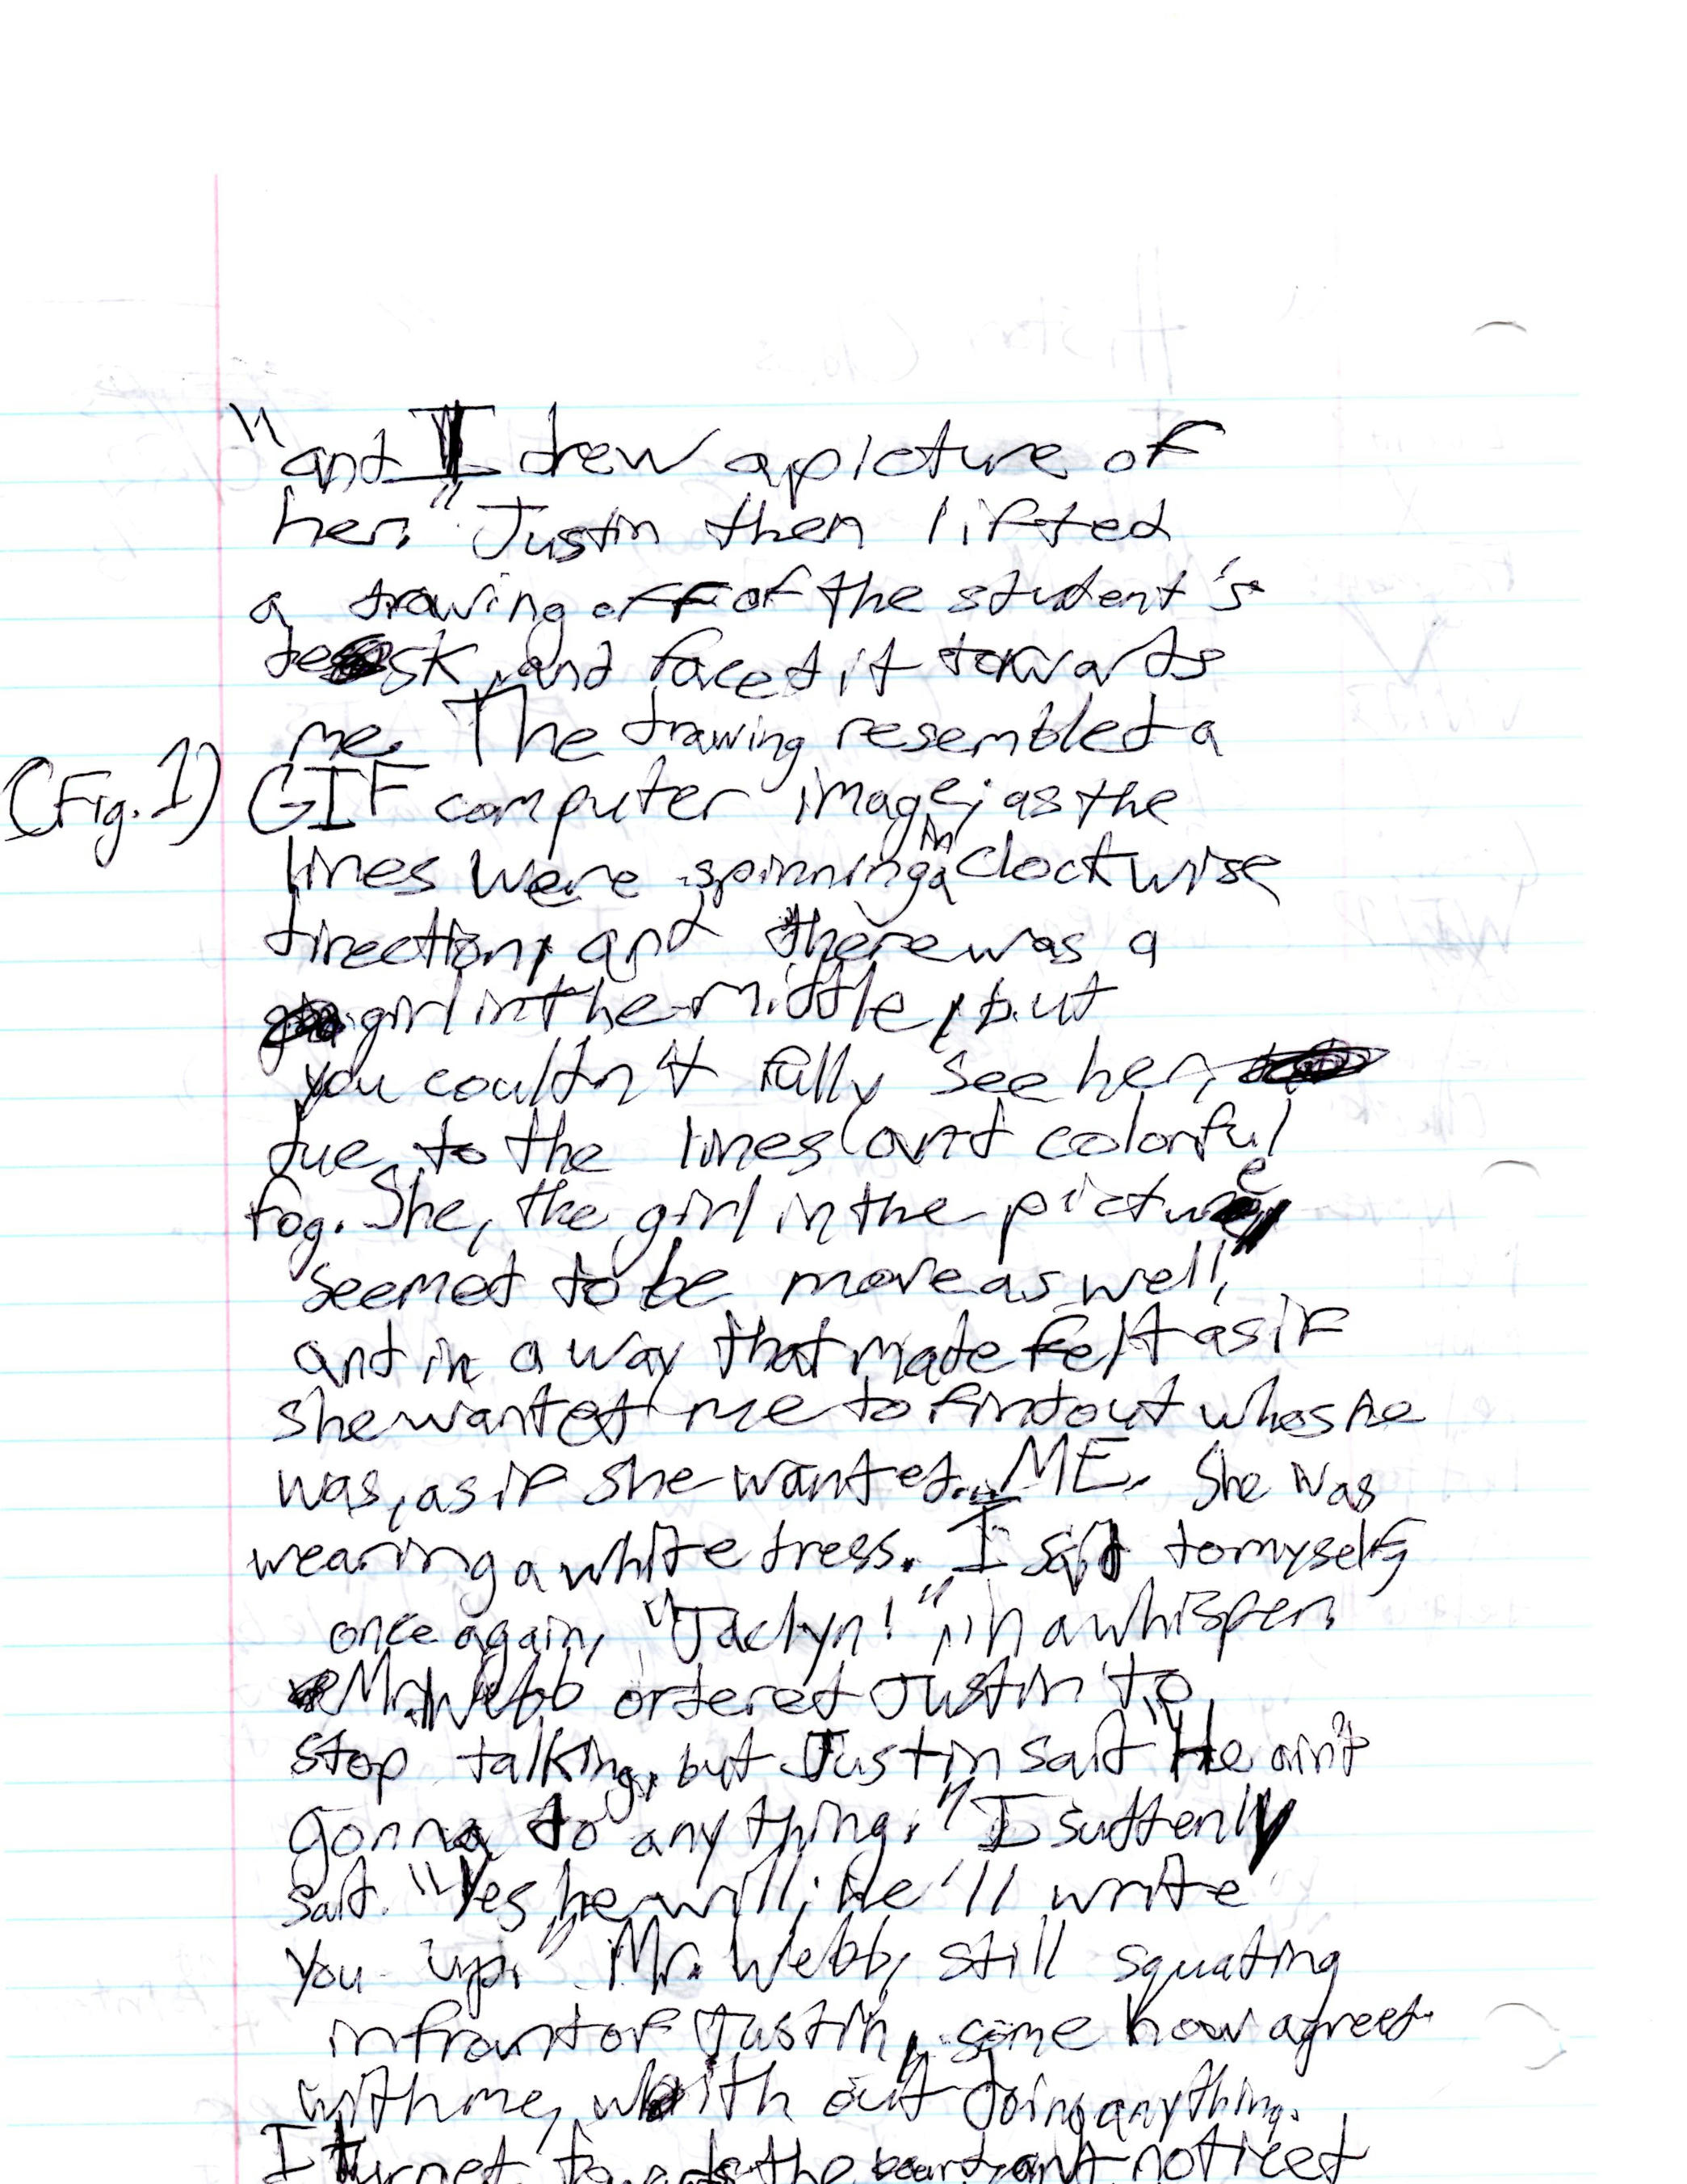 "and I drew a picture of
her." Justin then lifted
a drawing off of the student's
desk, and faced it towards
me. The drawing resembled a
(Fig. 1) GIF computer image; as the
lines were spinning in a clockwise
direction, and there was a
girl in the middle, but
you couldn't fully see her,
due to the lines and colorful
fog. She, the girl in the picture,
seemed to be move as well,
and in a way that made felt as if
she wanted me to find out who she
was, as if she wanted... ME. She was
wearing a white dress. I said to myself,
once again, "Jaclyn!", in a whisper.
Mr. Webb ordered Justin to
stop talking, but Justin said "He ain't
gonna do anything." I suddenly
said. "Yes he will; he'll write
you up." Mr. Webb, still squating
in front of Justin, some how agreed
with me, with out doing anything.
I turned towards the board, and noticed